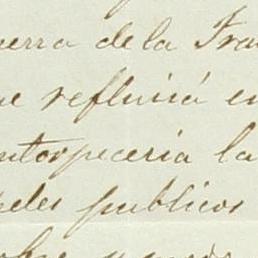 uerra de la Fran
ue refluirá en
ntorpeceria la
peles publicos